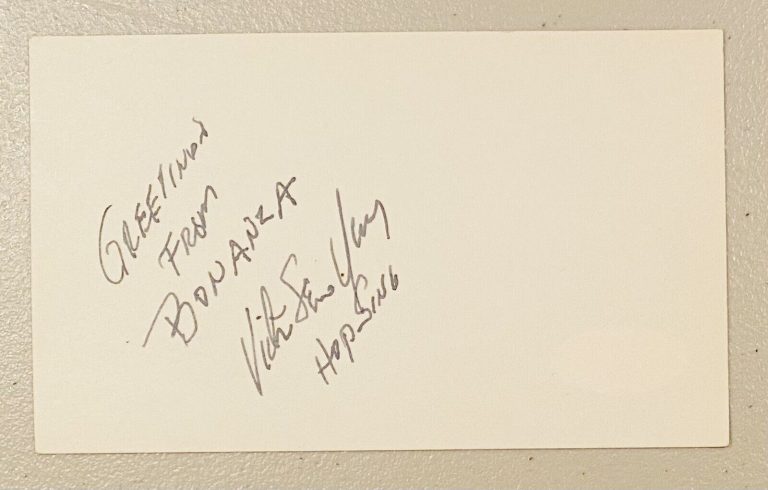 GREETINGS
FROM
BONANZA
Victor Sen Yung
HOP SING